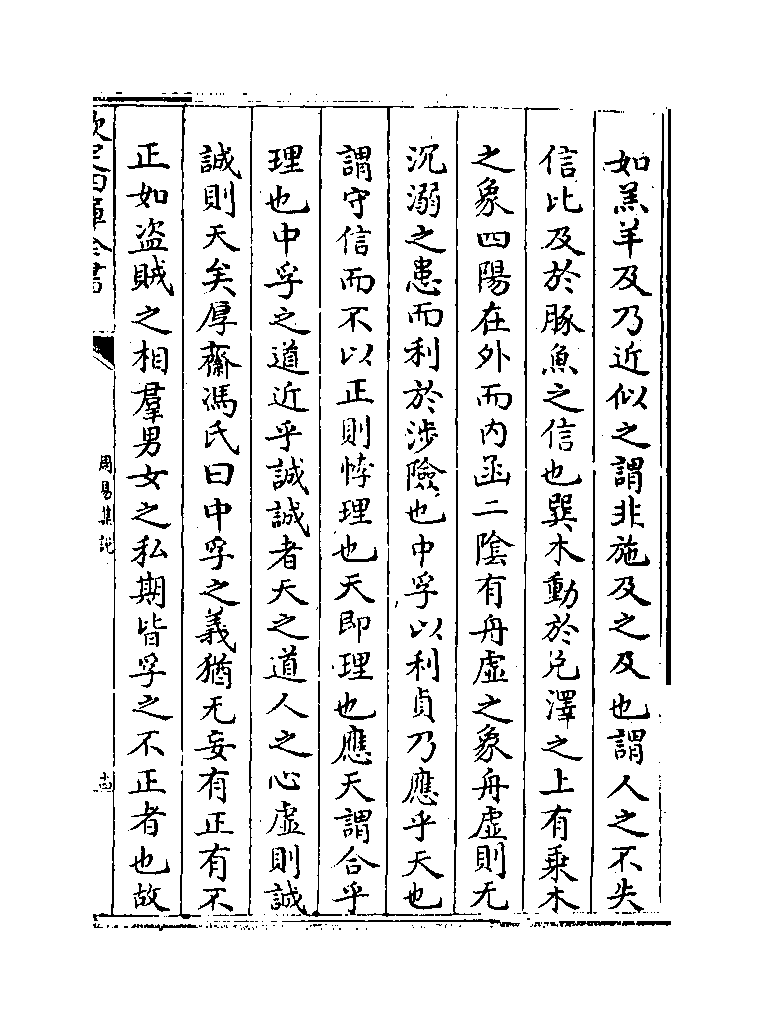 如羔羊及乃近似之謂非施及之及也謂人之不失
信比及於豚魚之信也巽木動於兌澤之上有乗木
之象四陽在外而内函二隂有舟虛之象舟虛則无
沉溺之患而利於涉險也中孚以利貞乃應乎天也
謂守信而不以正則悖理也天即理也應天謂合乎
理也中孚之道近乎誠誠者天之道人之心虛則誠
誠則天矣厚齋馮氏曰中孚之義猶无妄有正有不
正如盗賊之相羣男女之私期皆孚之不正者也故
欽定四庫全書
周易集說